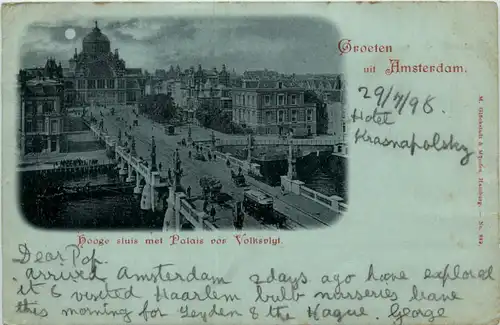 Groeten
uit Amsterdam.
29/7/98.
Hotel
Krasnapolsky
Hooge sluis met Palais voor Volksvlyt.
Dear Pop.
arrived Amsterdam 2 days ago have explored
it & visited Haarlem bulb nurseries leave
this morning for Leyden & the Hague. George